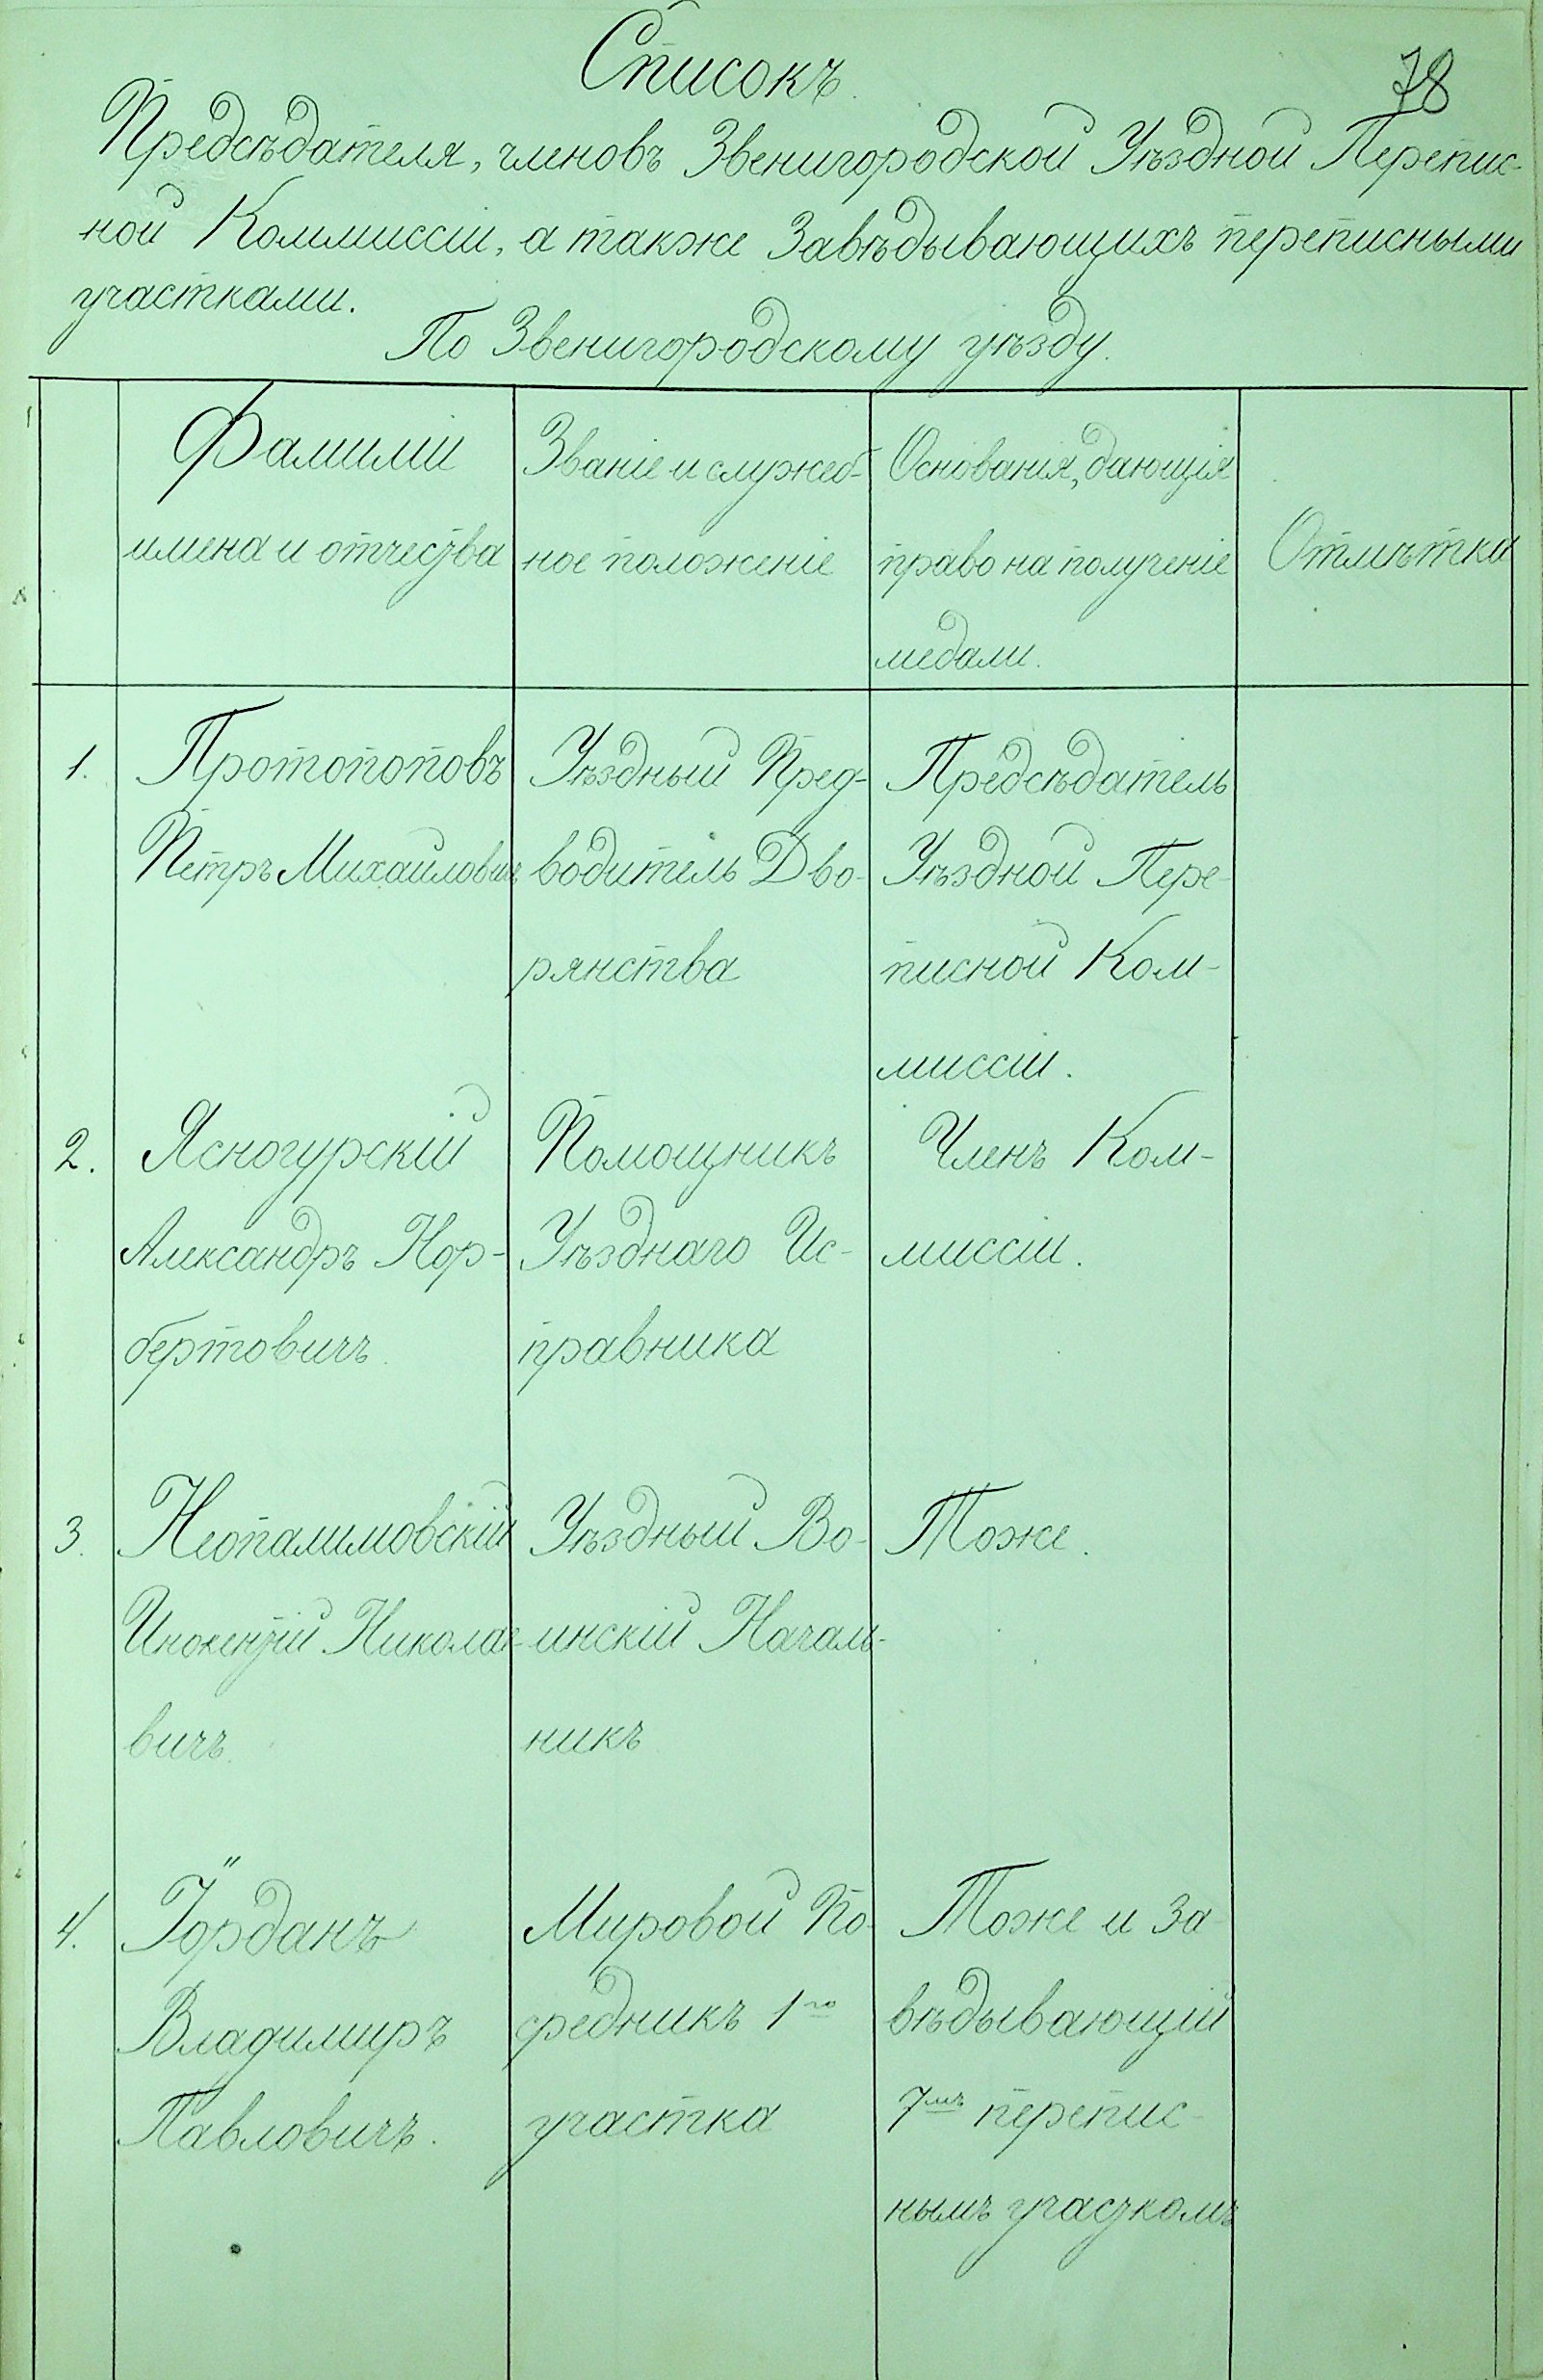 Списокъ.
78
Предсѣдателя, членовъ Звенигородской Уѣздной Перепис-
ной Коммиссіи, а также Завѣдывающихъ переписными
участками.
По Звенигородскому уѣзду.
Фамиліи
имена и отчества
Званіе и служеб-
ное положеніе
Основанія, дающія
право на полученіе
медали.
Отмѣтка
1.
Протопоповъ
Петръ Михаиловичъ
Уѣздный Пред-
водитель Дво-
рянства
Предсѣдатель
Уѣздной Пере-
писной Ком-
миссіи.
2.
Ясногурскій
Александръ Нор-
бертовичъ.
Помощникъ
Уѣзднаго Ис-
правника
Членъ Ком-
миссіи.
3.
Неопалимовскій
Инокентій Никола-
вичъ.
Уѣздный Во-
инскій Началь-
никъ
Тоже.
4.
Іорданъ
Владимиръ
Павловичъ.
Мировой По-
средникъ 1го
участка
Тоже и За-
вѣдывающій
7мъ перепис-
нымъ участкомъ